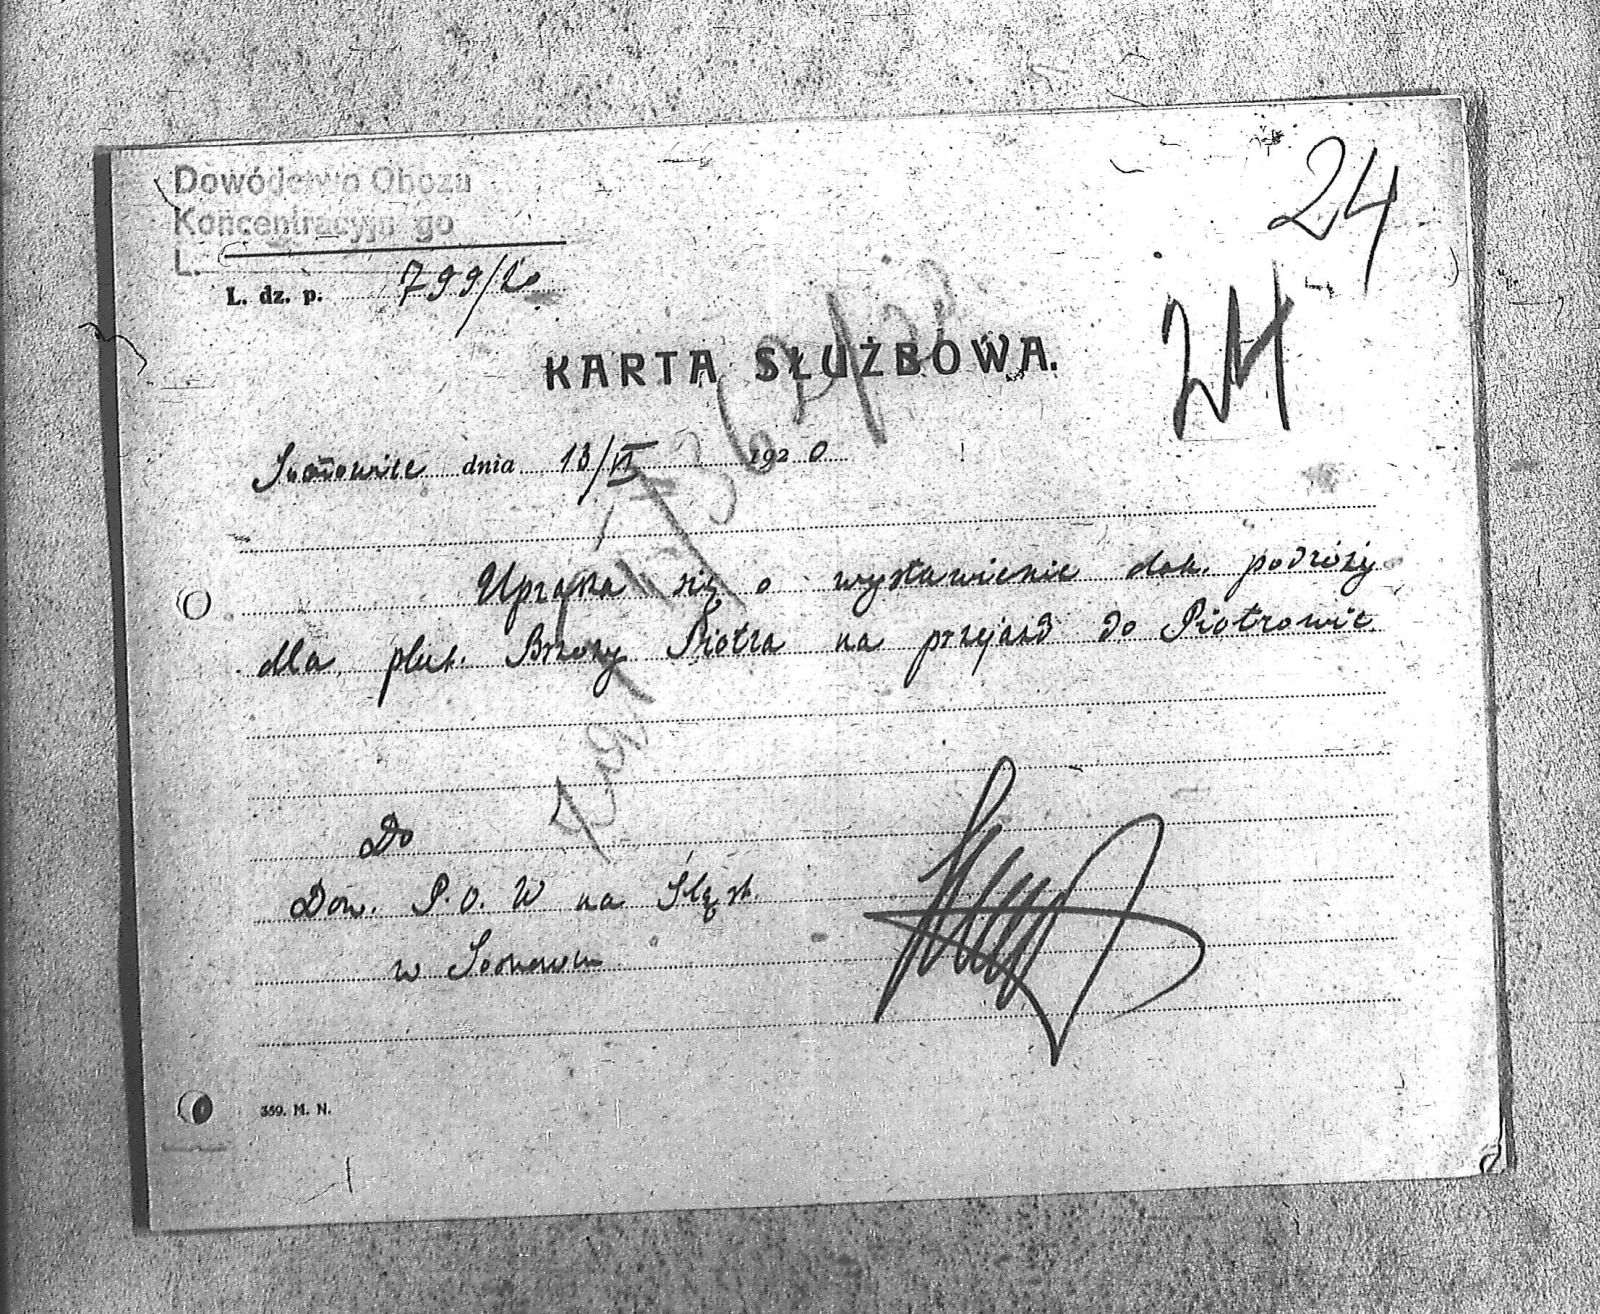 Dowództwo Obozu
Koncentracyjn go
L.
L. dz. p. 799/20
24
24
KARTA SŁUŻBOWA.
Sosnowice dnia 13/VI 1920
Uprasza się o wystawienie dok. podróży
dla plut. Brzozy Piotra na przejazd do Piotrowic
Do
Dow. P.O.W na Śląsk.
w Sosnowcu
359. M. N.